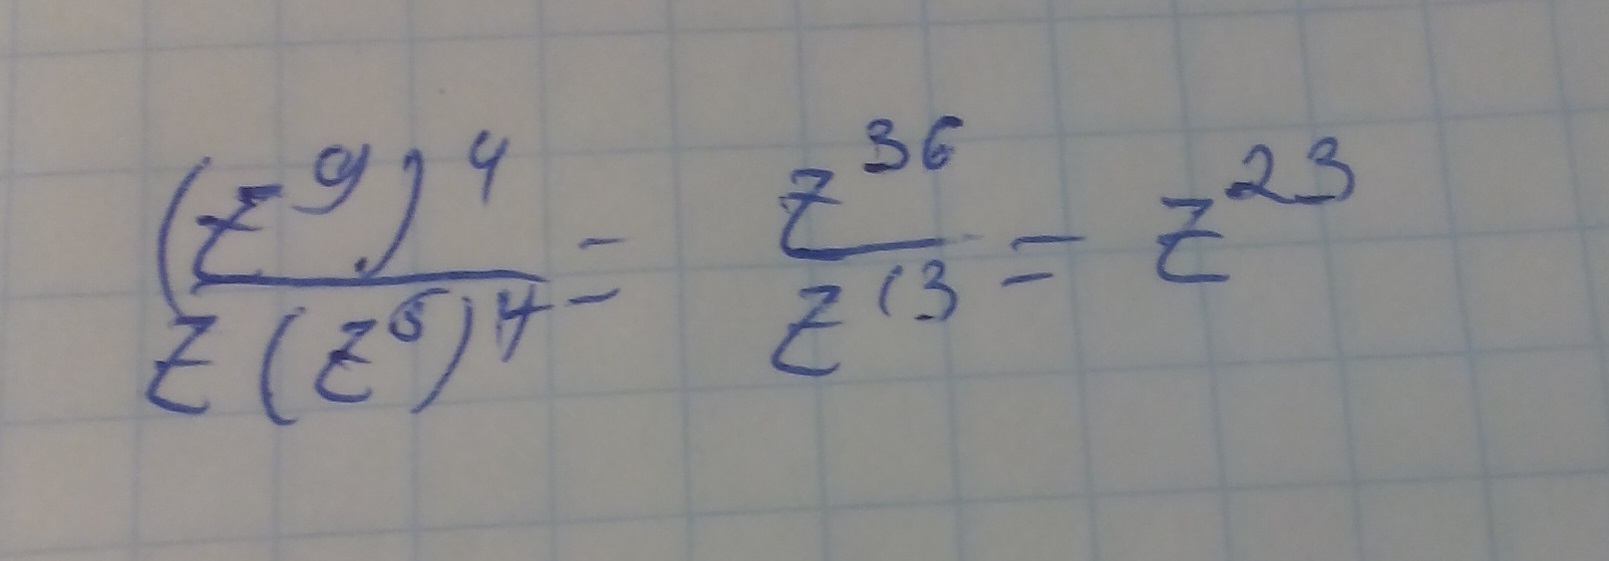 (z^9)^4 / z(z^5)^4 = z^36 / z^13 = z^23